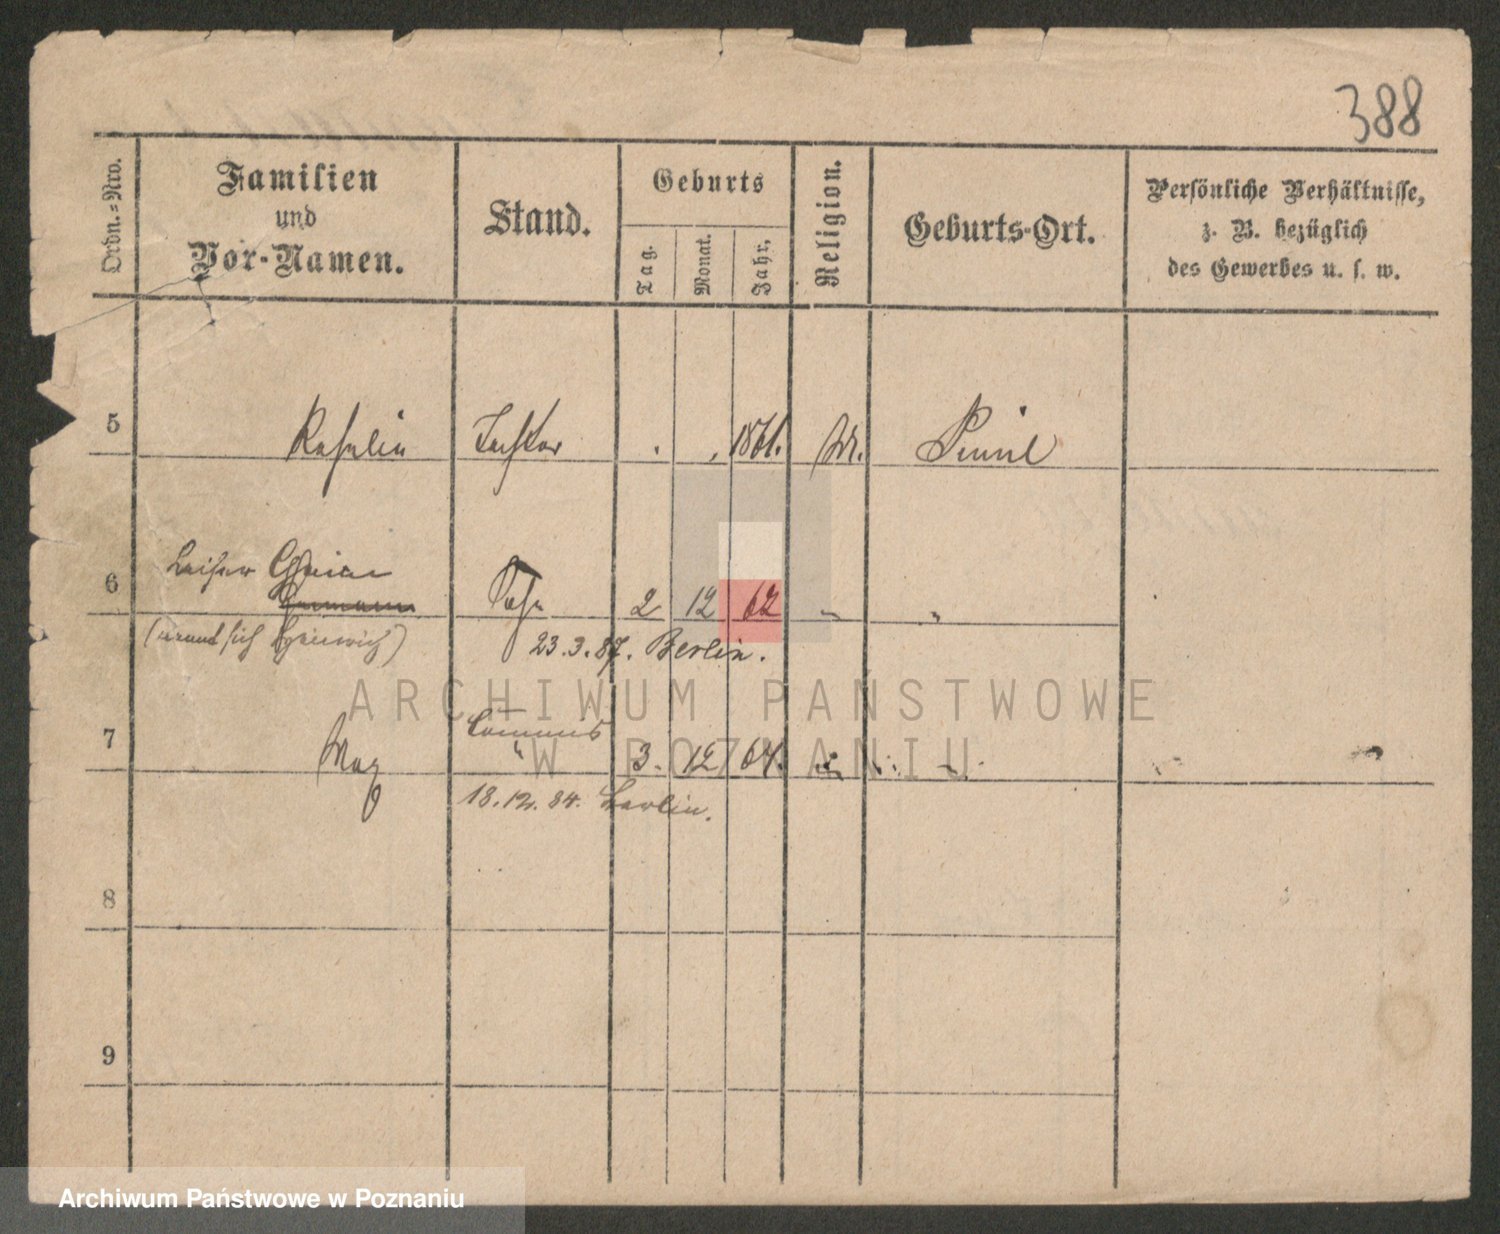 388
Ordn.-Nro.
Familien
und
Vor-Namen.
Stand.
Geburts
Tag.
Monat.
Jahr,
Religion.
Geburts-Ort.
Persönliche Verhältnisse,
z. B. bezüglich
des Gewerbes u. s. w.
5 Rosalie Tochter . . 1861. M.
6 Leiser Chaim Sohn 2 12 62 " "
(nennt sich Heinrich) 23.3.87. Berlin.
Commis
7 Max " 3. 12 64.
18.12.84. Berlin.
8
9
ARCHIWUM PAŃSTWOWE
W POZNANIU
Archiwum Państwowe w Poznaniu